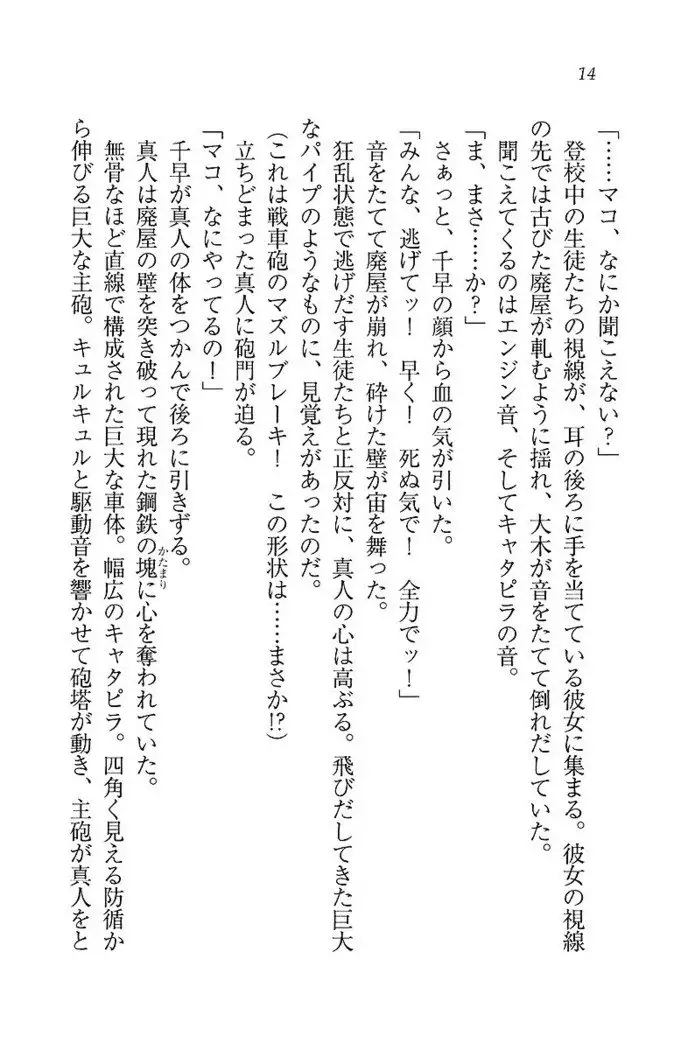 14
「……マコ、なにか聞こえない？」
登校中の生徒たちの視線が、耳の後ろに手を当てている彼女に集まる。彼女の視線
の先では古びた廃屋が軋むように揺れ、大木が音をたてて倒れだしていた。
聞こえてくるのはエンジン音、そしてキャタピラの音。
「ま、まさ……か？」
さぁっと、千早の顔から血の気が引いた。
「みんな、逃げてッ！　早く！　死ぬ気で！　全力でッ！」
音をたてて廃屋が崩れ、砕けた壁が宙を舞った。
狂乱状態で逃げだす生徒たちと正反対に、真人の心は高ぶる。飛びだしてきた巨大
なパイプのようなものに、見覚えがあったのだ。
（これは戦車砲のマズルブレーキ！　この形状は……まさか!?）
立ちどまった真人に砲門が迫る。
「マコ、なにやってるの！」
千早が真人の体をつかんで後ろに引きずる。
真人は廃屋の壁を突き破って現れた鋼鉄の塊に心を奪われていた。
かたまり
無骨なほど直線で構成された巨大な車体。幅広のキャタピラ。四角く見える防循か
ら伸びる巨大な主砲。キュルキュルと駆動音を響かせて砲塔が動き、主砲が真人をと